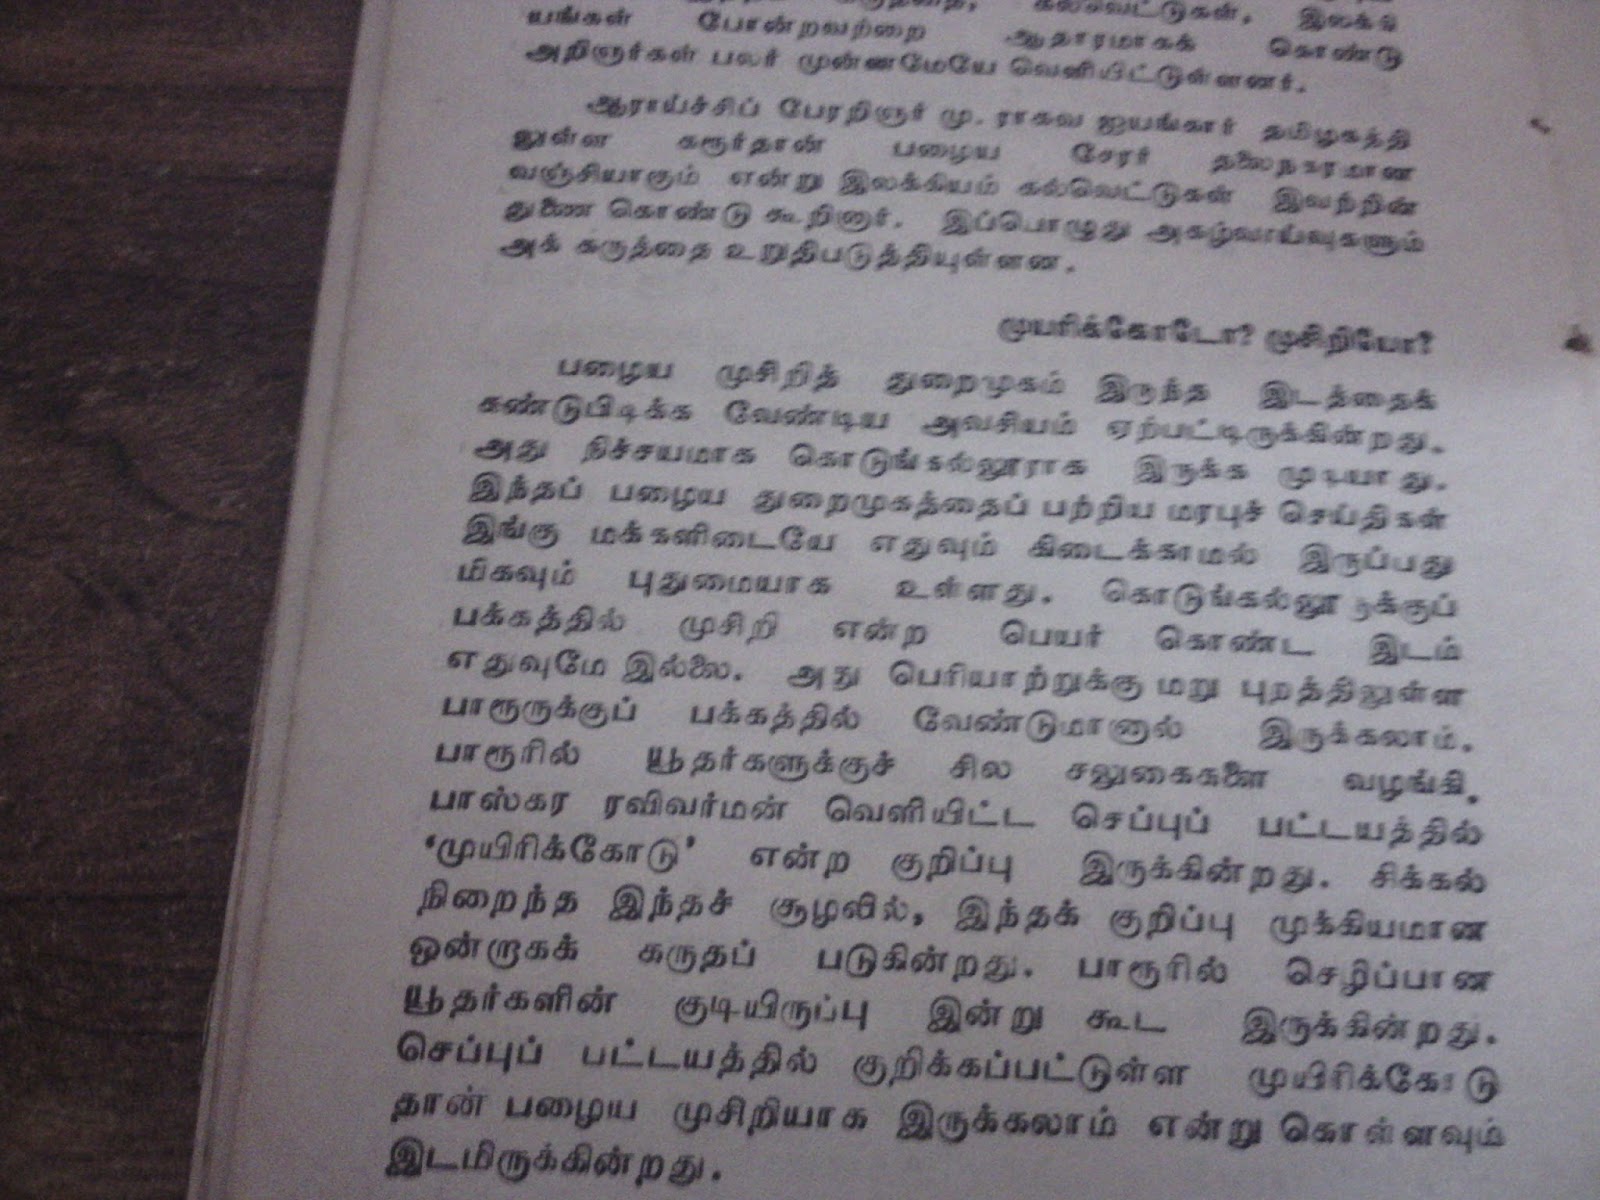 கல்வெட்டுகள், இலக்கி
யங்கள் போன்றவற்றை ஆதாரமாகக் கொண்டு
அறிஞர்கள் பலர் முன்னமேயே வெளியிட்டுள்ளனர்.
ஆராய்ச்சிப் பேரறிஞர் மு. ராகவ ஐயங்கார் தமிழகத்தி
லுள்ள கரூர்தான் பழைய சேரர் தலைநகரமான
வஞ்சியாகும் என்று இலக்கியம் கல்வெட்டுகள் இவற்றின்
துணை கொண்டு கூறினார். இப்பொழுது அகழ்வாய்வுகளும்
அக் கருத்தை உறுதிபடுத்தியுள்ளன.
முயரிக்கோடோ? முசிறியோ?
பழைய முசிறித் துறைமுகம் இருந்த இடத்தைக்
கண்டுபிடிக்க வேண்டிய அவசியம் ஏற்பட்டிருக்கின்றது.
அது நிச்சயமாக கொடுங்கல்லூராக இருக்க முடியாது.
இந்தப் பழைய துறைமுகத்தைப் பற்றிய மரபுச் செய்திகள்
இங்கு மக்களிடையே எதுவும் கிடைக்காமல் இருப்பது
மிகவும் புதுமையாக உள்ளது. கொடுங்கல்லூருக்குப்
பக்கத்தில் முசிறி என்ற பெயர் கொண்ட இடம்
எதுவுமே இல்லை. அது பெரியாற்றுக்கு மறு புறத்திலுள்ள
பாரூருக்குப் பக்கத்தில் வேண்டுமானால் இருக்கலாம்.
பாரூரில் யூதர்களுக்குச் சில சலுகைகளை வழங்கி.
பாஸ்கர ரவிவர்மன் வெளியிட்ட செப்புப் பட்டயத்தில்
‘முயிரிக்கோடு’ என்ற குறிப்பு இருக்கின்றது. சிக்கல்
நிறைந்த இந்தச் சூழலில், இந்தக் குறிப்பு முக்கியமான
ஒன்றாகக் கருதப் படுகின்றது. பாரூரில் செழிப்பான
யூதர்களின் குடியிருப்பு இன்று கூட இருக்கின்றது.
செப்புப் பட்டயத்தில் குறிக்கப்பட்டுள்ள முயிரிக்கோடு
தான் பழைய முசிறியாக இருக்கலாம் என்று கொள்ளவும்
இடமிருக்கின்றது.